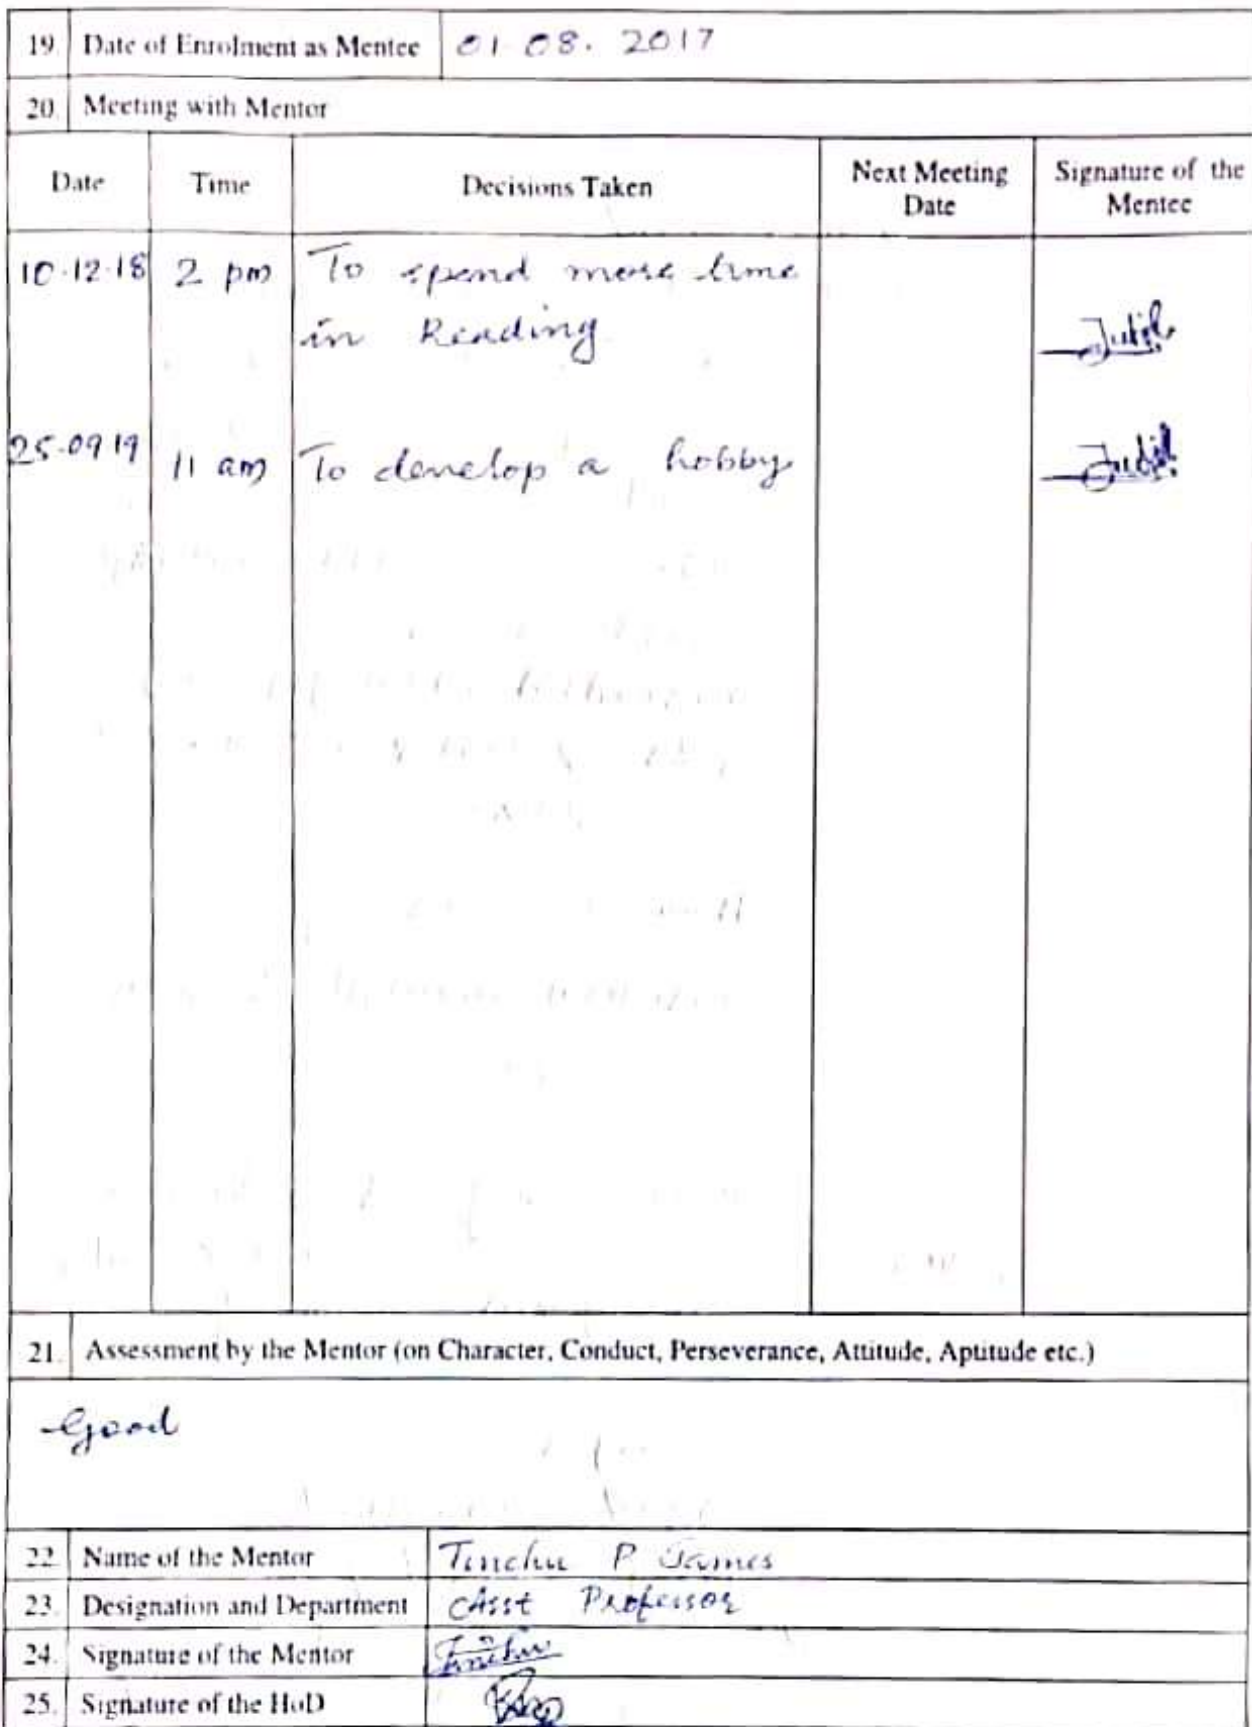 19. Date of Enrolment as Mentee 01.08.2017
20. Meeting with Mentor
Date Time Decisions Taken Next Meeting Date Signature of the Mentee
10.12.18 2 pm To spend more time
in Reading
25.09.19 11 am To develop a hobby
21. Assessment by the Mentor (on Character, Conduct, Perseverance, Attitude, Aptitude etc.)
Good
22. Name of the Mentor Tinchu P James
23. Designation and Department Asst Professor
24. Signature of the Mentor
25. Signature of the HoD